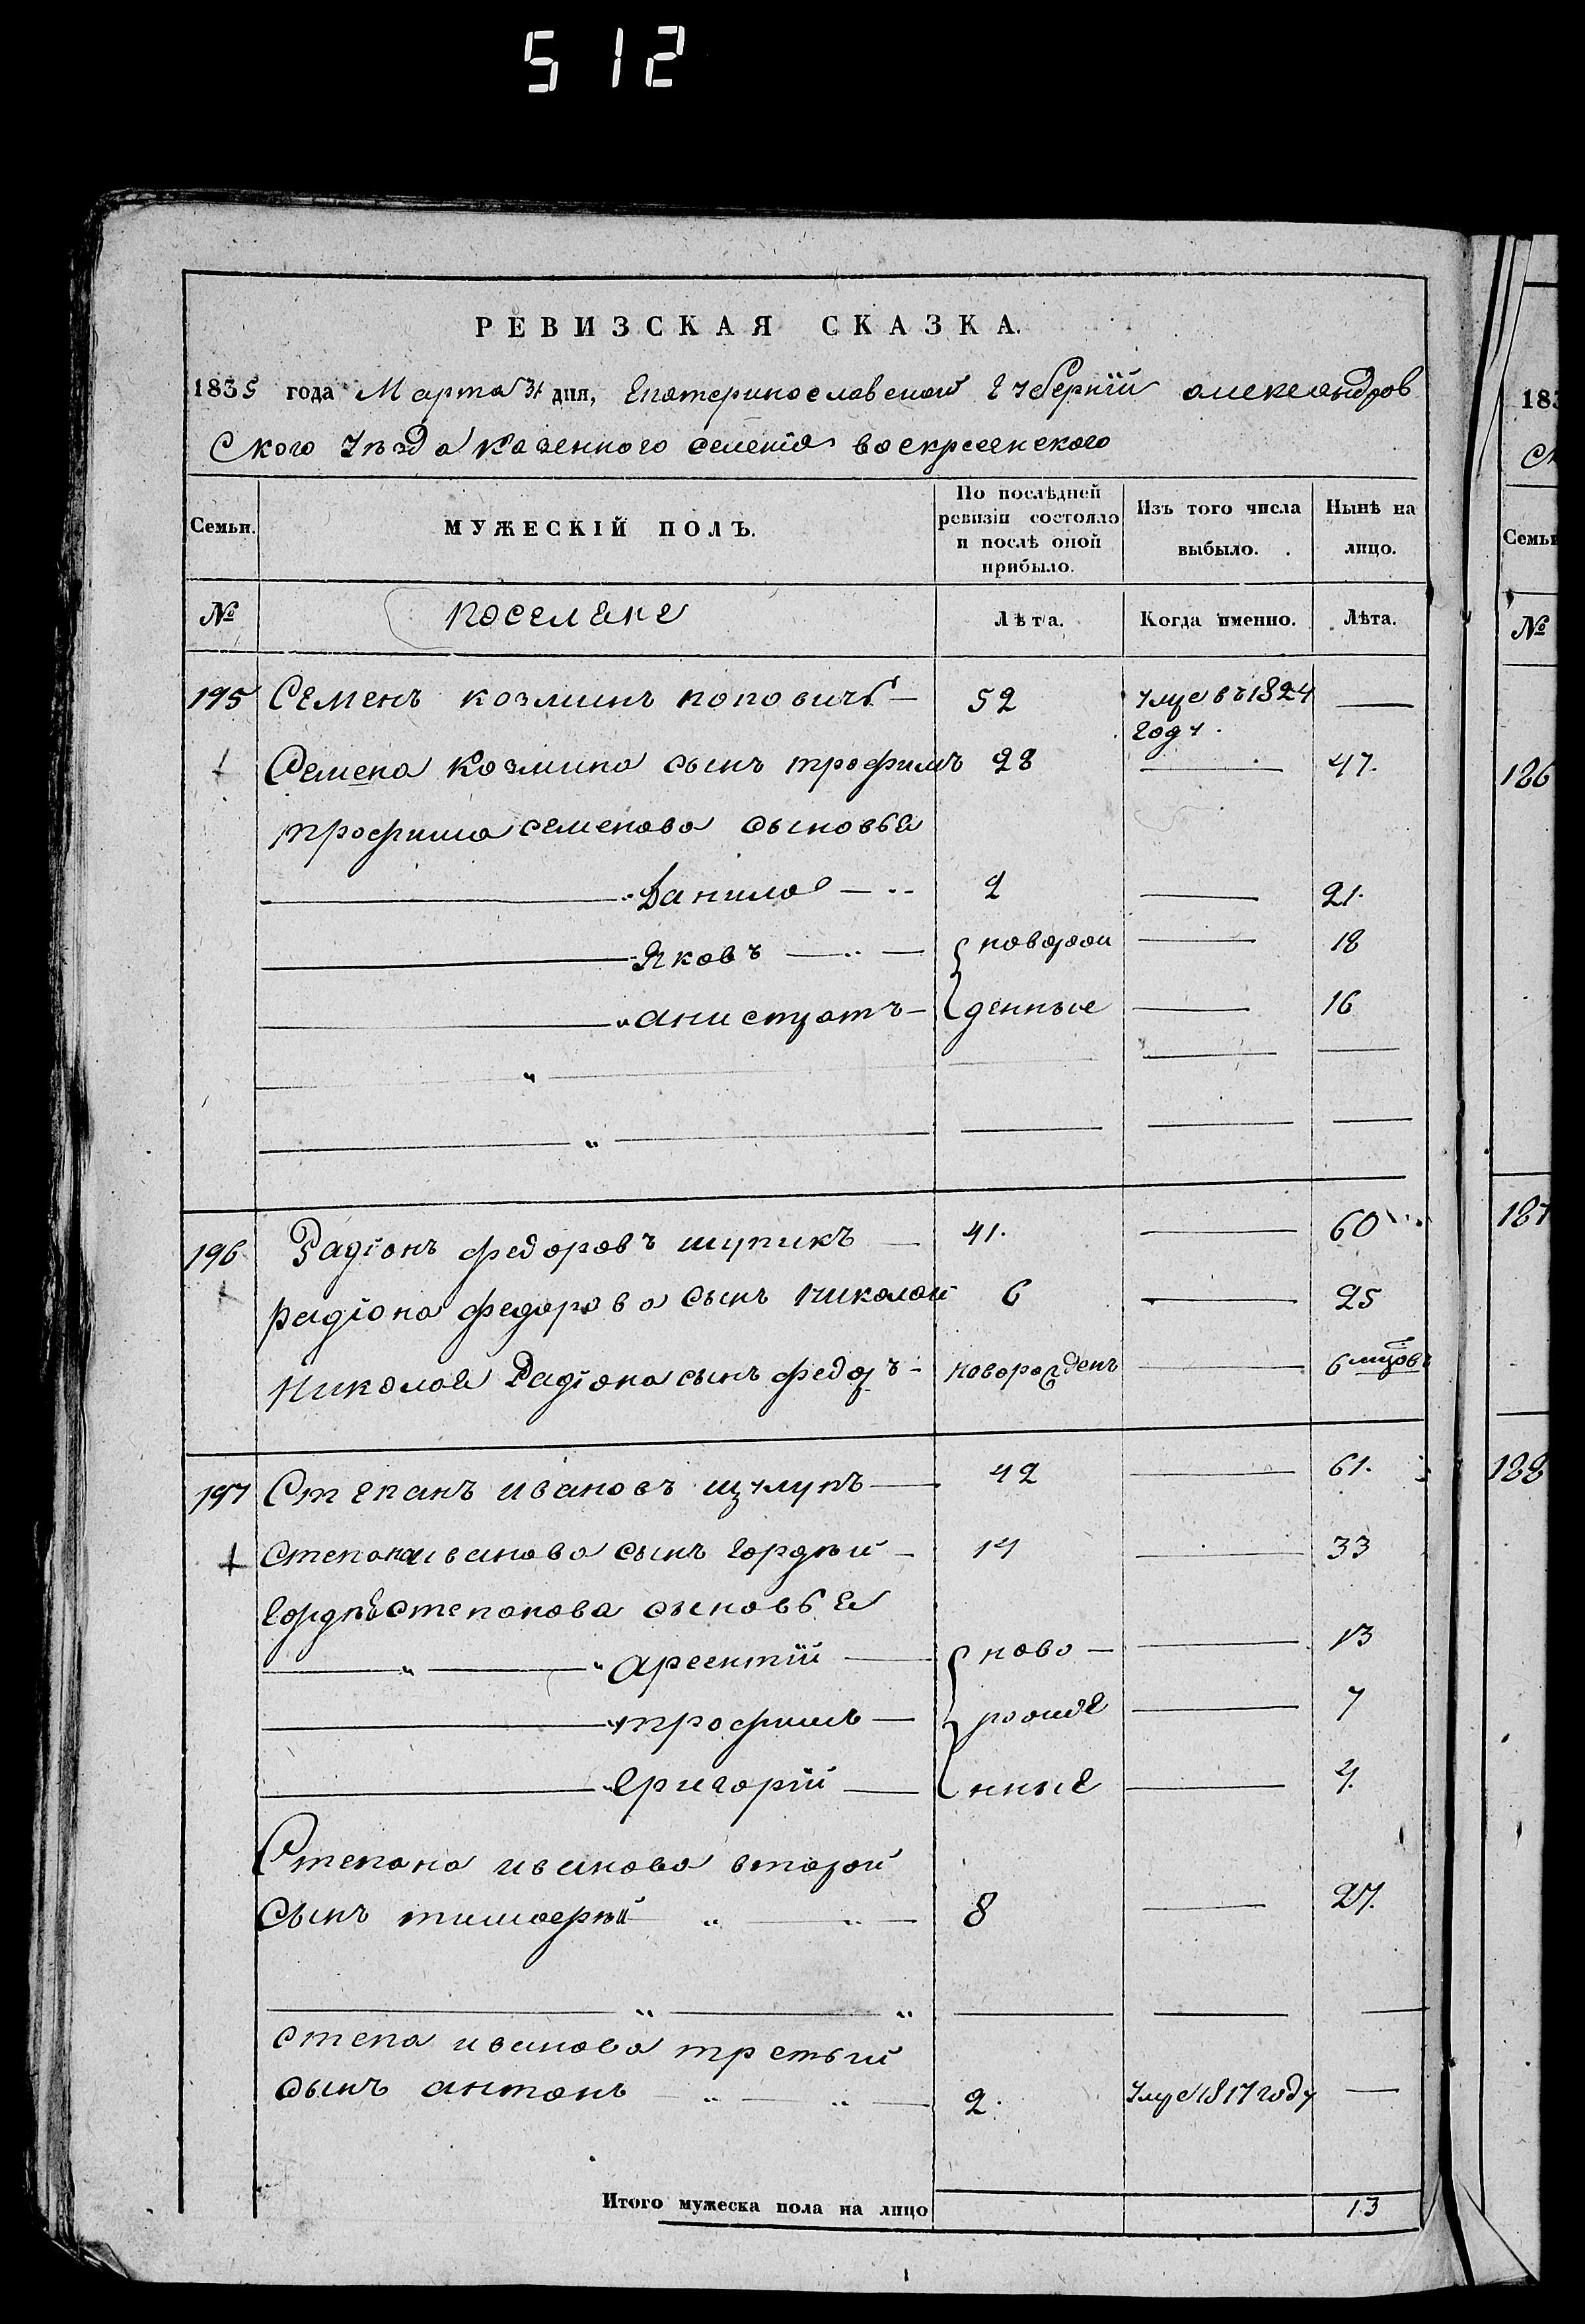 512
РЕВИЗСКАЯ СКАЗКА.
1835 года Марта 31 дня, Екатеринославской Губернiи александров
Ского уѣзда казенного селенiя воскресенского
Семьи.
МУЖЕСКІЙ ПОЛЪ.
По послѣдней ревизіи состояло и послѣ оной прибыло.
Изъ того числа выбыло.
Нынѣ на лицо.
№ поселяне Лѣта. Когда именно. Лѣта.
195 Семенъ козминъ поповичь — 52 умре въ 1824 году. —
Семена Козмина сынъ трофимъ 28 — 47.
трофима семенова сыновья
Данило — 2 — 21.
Яковъ — новорож — 18
анистратъ — денные — 16
196 Радiонъ федоровъ шупикъ — 41. — 60
Радiона федорова сынъ николай 6 — 25
Николая Радiона сынъ федоръ - новорожденъ — 6 мцовъ
197 Степанъ ивановъ — 42 — 61.
Степана иванова сынъ гордѣй — 14 — 33
гордѣя степанова сыновья
арсентiй — ново — — 13
трофимъ — рожде — 7
григорiй — нные — 4.
Степана иванова второй
сынъ тимофѣй — 8 — 27.
степа иванова третьiй
сынъ антонъ — 2. умре 1817 году —
Итого мужеска пола на лицо 13
183
Ск
Семьи
№
186
187
188